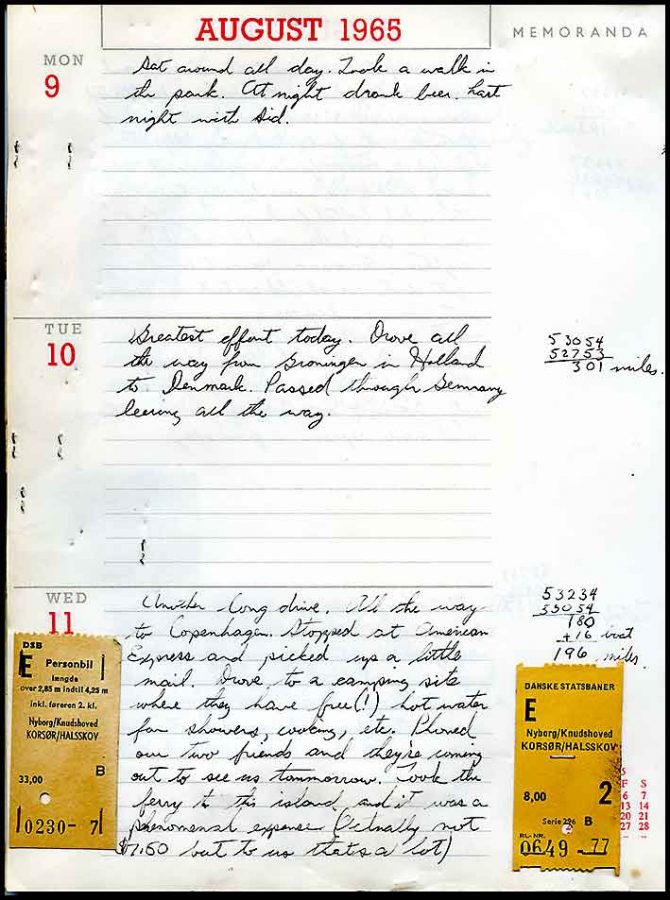 AUGUST 1965
MEMORANDA
MON
9
Sat around all day. Took a walk in
the park. At night drank beer. Last
night with Sid.
TUE
10
Greatest effort today. Drove all
the way from Groningen in Holland
to Denmark. Passed through Germany
leering all the way.
53054
52753
301 miles.
WED
11
Another long drive. All the way
to Copenhagen. Stopped at American
Express and picked up a little
mail. Drove to a camping site
where they have free(!) hot water
for showers, cooking, etc. Phoned
our two friends and they're coming
out to see us tommorrow. Took the
ferry to this island and it was a
phenomenal expense (Actually not
$7.50 but to us thats a lot)
53234
53054
180
+16 boat
196 miles
DSB
E Personbil
længde
over 2,85 m indtil 4,25 m
inkl. føreren 2. kl.
Nyborg/Knudshoved
KORSØR/HALSSKOV
B
33,00
0230- 7
DANSKE STATSBANER
E
Nyborg/Knudshoved
KORSØR/HALSSKOV
8,00 2
Serie 296 B
BL.-NR.
0649 -77
S
F S
6 7
13 14
20 21
27 28